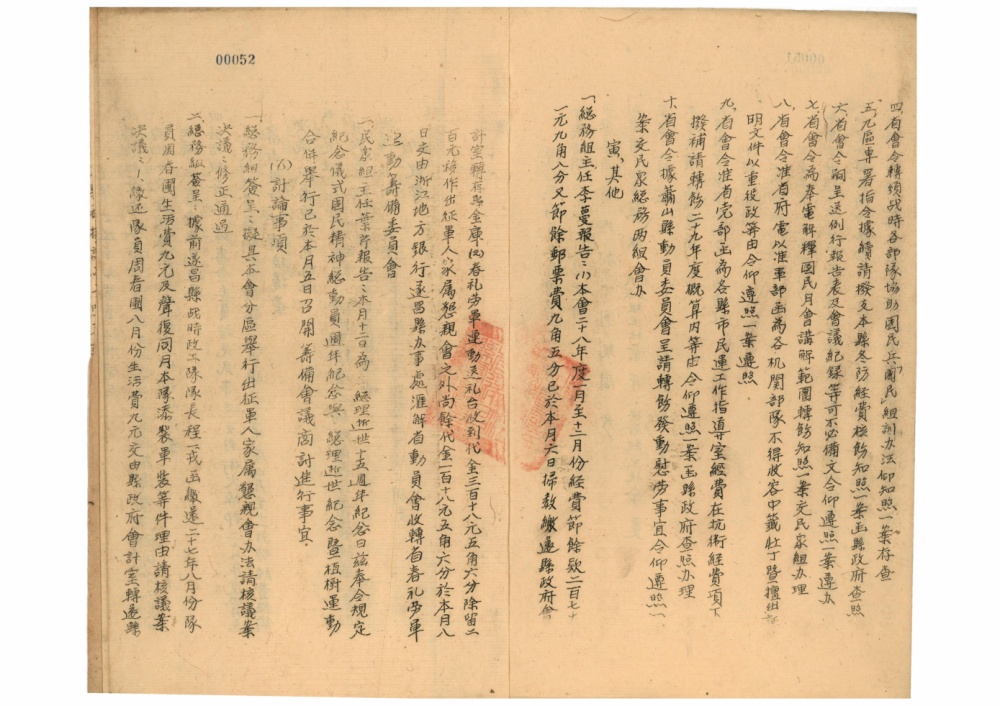 四、省會令轉頒战時各部隊協助國民兵團民組訓办法仰知照一案存查
五、九區專署指令據續請撥支本縣冬防経費核飭知照一案函縣政府查照
六、省會令嗣呈送例行報告表及會議紀録等可不必備文令仰遵照一案遵办
七、省會令為奉電解釋國民月會講解範圍轉飭知照一案交民眾組办理
八、省會令准省府電以准軍部函為各机関部隊不得收容中籤壮丁暨擅出
明文件以重役政等由令仰遵照一案遵照
九、省會令准省党部函為各縣市民運工作指導室経費在抗衛経費項下
撥補請轉飭二十九年度概算内等由令仰遵照一案函縣政府查照办理
十、省會令據蕭山縣動員委員會呈請轉飭發動慰劳事宜令仰遵照一
案交民眾總務兩組會办
寅、其他
一、總務組主任李蔓報告：⑴本會二十八年度一月至十二月份経費節餘欵二百七十
一元九角八分又節餘郵票費九角五分已於本月六日掃数繳還縣政府會
00052
計室轉存縣金庫⑵春礼劳軍運動送礼台收到代金三百十八元五角六分除留二
百元移作出征軍人家属懇親會之外尚餘代金一百十八元五角六分於本月八
日交由浙江地方銀行遂昌縣办事處滙解省動員會收轉省春礼劳軍
運動籌備委員會
一、民眾組主任葉芳報告：本月十二日為 総理逝世十五週年紀念日兹奉令規定
紀念儀式國民精神総動員週年紀念與 総理逝世紀念暨植樹運動
合併舉行已於本月五日召開籌備會議商計進行事宜．
⑹討論事項
一、總務組簽呈：擬具本會分區舉行出征軍人家属懇親會办法請核議案
决議：修正通過
二、總務組簽呈：據前遂昌縣战時政工隊隊長程一戎函繳還二十七年八月份隊
員周春圃生活費九元及聲復同月本隊添製軍裝等件理由請核議案
决議：⒈隊員周春圃八月份生活費九元交由縣政府會計室轉還縣